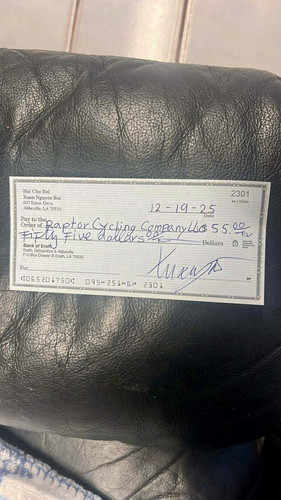 Hai Chu Bui
Xuan Nguyen Bui
Abbeville, LA 70510
2301
12-19-25
Date
Pay to the
Order of Raptor Cycling Company LLC $ 55.00
Fifty Five dollars Dollars
Bank of Erath
Erath, Delcambre & Abbeville
P.O. Box Drawer B Erath, LA 70533
For